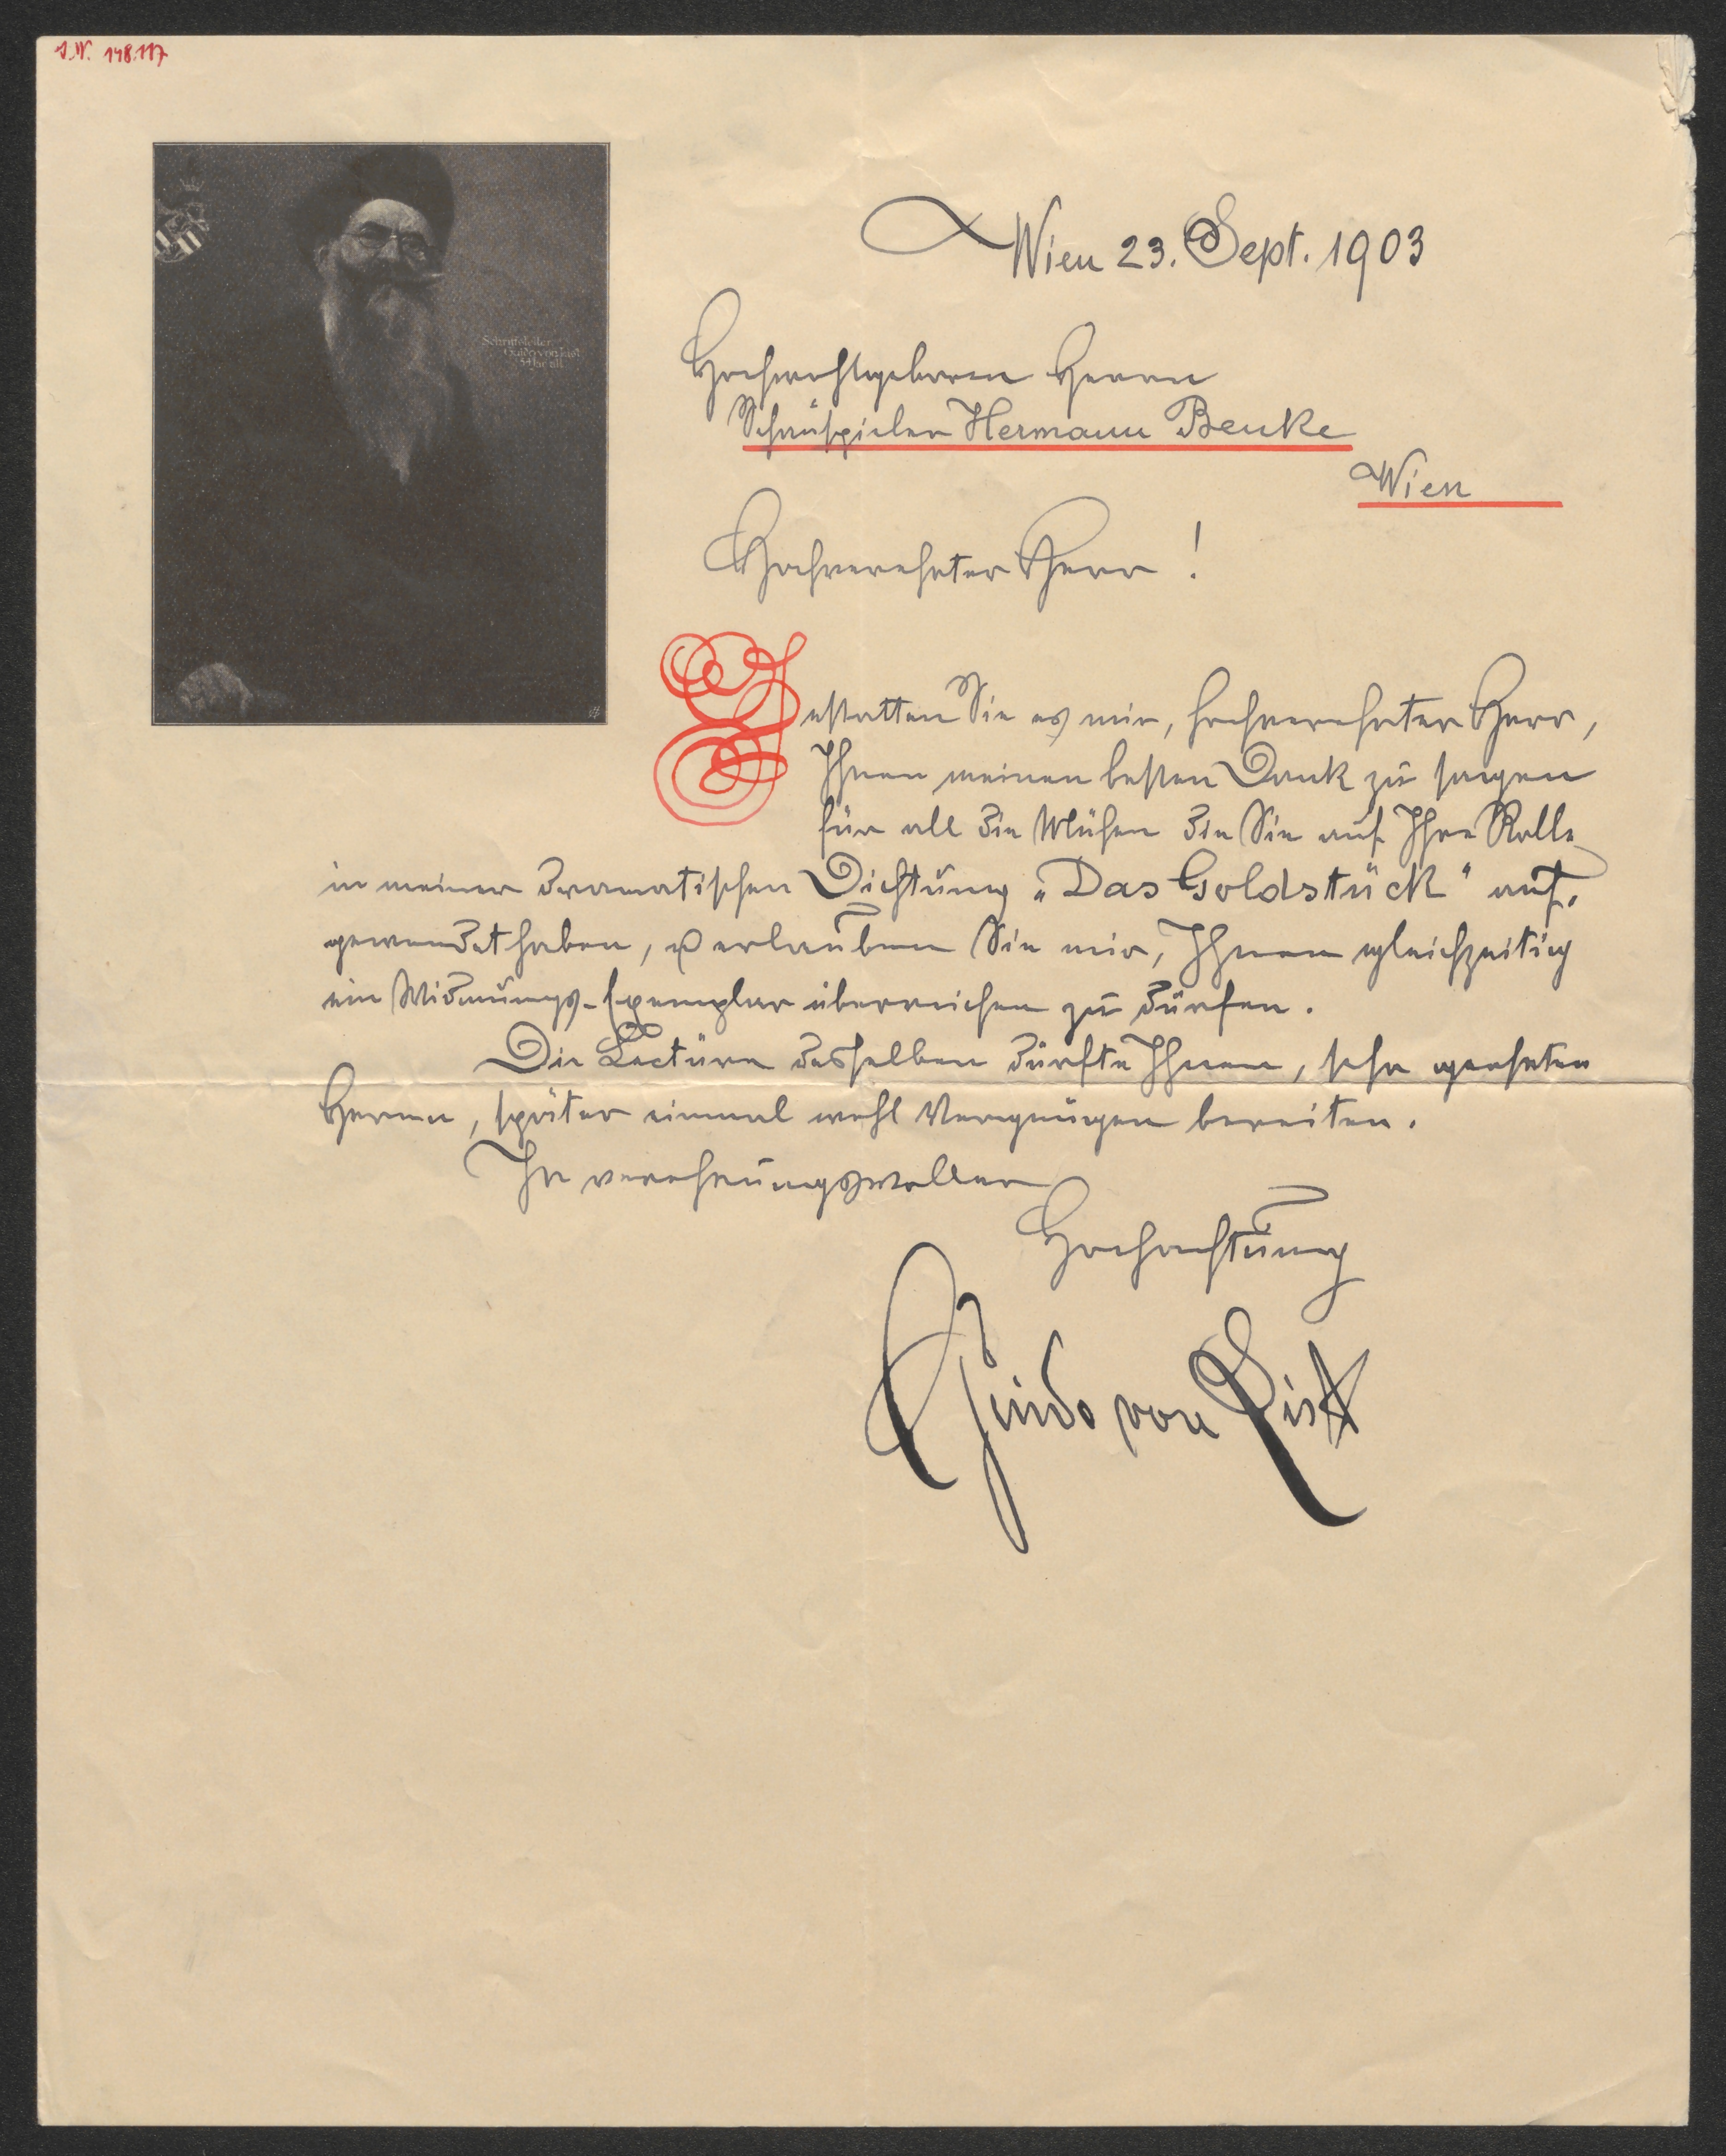 J.N. 148.117
Schriftsteller
Guido von List
54 Jar alt
Wien 23. Sept. 1903
Hochwohlgeboren Herrn
Schauspieler Hermann Benke
Wien
Hochverehrter Herr!
Gestatten Sie es mir, hochverehrter Herr,
Ihnen meinen besten Dank zu sagen
für all die Mühen die Sie auf Ihre Rolle
in meiner dramatischen Dichtung „Das Goldstück“ auf-
gewendet haben, u erlauben Sie mir, Ihnen gleichzeitig
ein Widmungs-Exemplar überreichen zu dürfen.
Die Lectüre desselben dürfte Ihnen, sehr geehrter
Herr, später einmal wohl Vergnügen bereiten.
In verehrungsvoller
Hochachtung
Guido von List